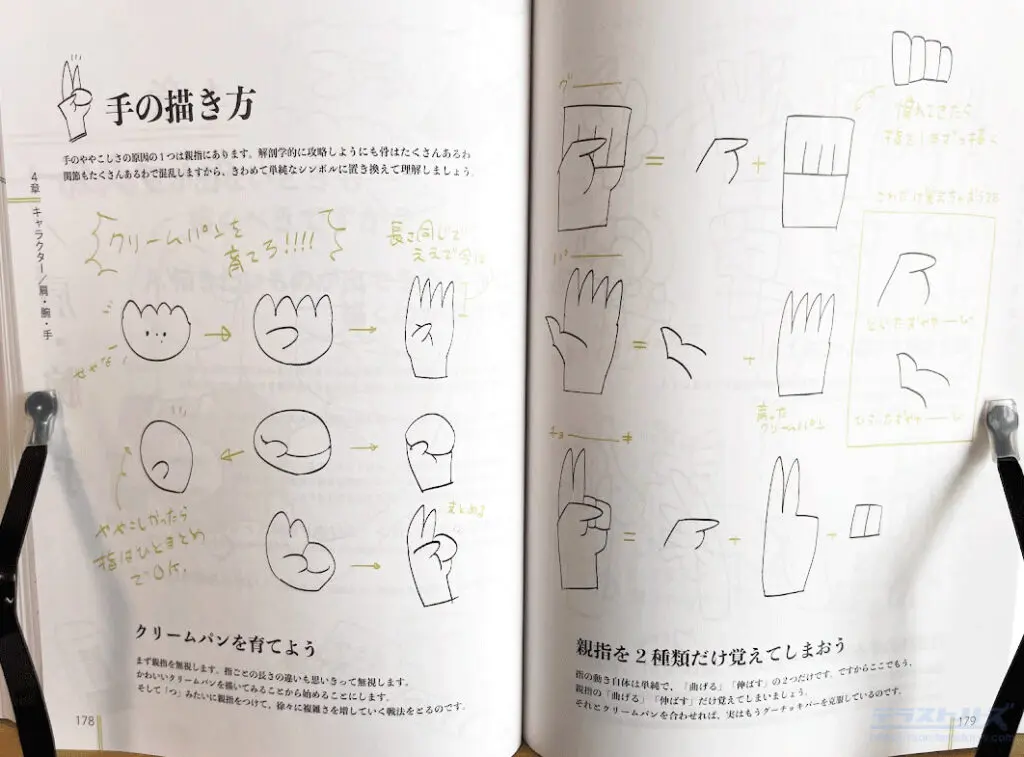 手の描き方
手のややこしさの原因の1つは親指にあります。解剖学的に攻略しようにも骨はたくさんあるわ
関節もたくさんあるわで混乱しますから、きわめて単純なシンボルに置き換えて理解しましょう。
4章 キャラクター/肩・腕・手
クリームパンを
育てろ!!!!
長さ同じで
ええで今は
ややこしかったら
指はひとまとめ
でOK.
まとめる
クリームパンを育てよう
まず親指を無視します。指ごとの長さの違いも思いきって無視します。
かわいいクリームパンを描いてみることから始めることにします。
そして「つ」みたいに親指をつけて、徐々に複雑さを増していく戦法をとるのです。
178
グ
=
+
慣れてきたら
指を1本ずつ描く
これだけ覚えちゃおうZE
パ
=
+
育った
クリームパン
チョ キ
=
+
+
親指を2種類だけ覚えてしまおう
指の動き自体は単純で、「曲げる」「伸ばす」の2つだけです。ですからここでもう、
親指の「曲げる」「伸ばす」だけ覚えてしまいましょう。
それとクリームパンを合わせれば、実はもうグーチョキパーを克服しているのです。
179